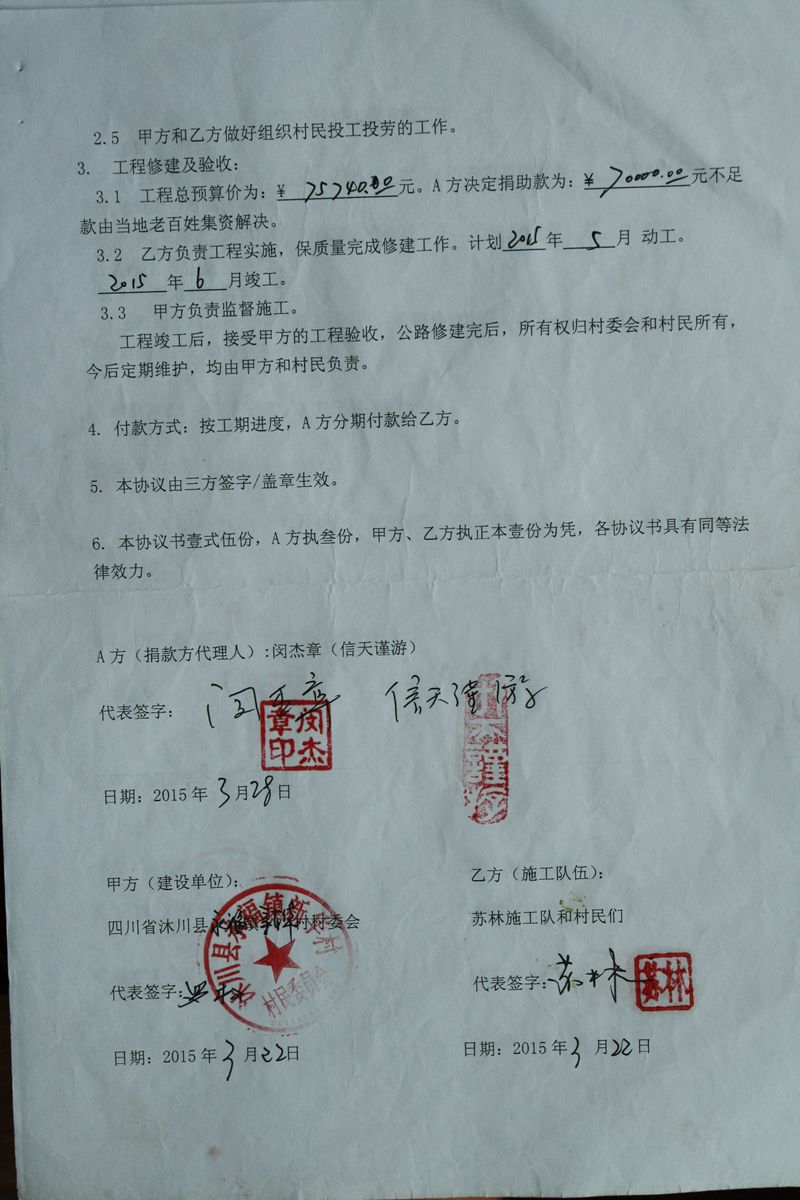 2.5 甲方和乙方做好组织村民投工投劳的工作。
3. 工程修建及验收:
3.1 工程总预算价为:¥ 75740.00元。A方决定捐助款为:¥ 70000.00元不足
款由当地老百姓集资解决。
3.2 乙方负责工程实施,保质量完成修建工作。计划2015年 5月 动工。
2015 年 6 月竣工。
3.3 甲方负责监督施工。
工程竣工后,接受甲方的工程验收,公路修建完后,所有权归村委会和村民所有,
今后定期维护,均由甲方和村民负责。
4. 付款方式:按工期进度,A方分期付款给乙方。
5. 本协议由三方签字/盖章生效。
6. 本协议书壹式伍份,A方执叁份,甲方、乙方执正本壹份为凭,各协议书具有同等法
律效力。
A方(捐款方代理人):闵杰章(信天谨游)
代表签字: 闵杰章 信天谨游
章闵
印杰
日期:2015年 3月28日
甲方(建设单位):
四川省沐川县永福镇村村委会
沐川县永福镇村
村民委员会
代表签字:
日期:2015年3月22日
乙方(施工队伍):
苏林施工队和村民们
代表签字:苏林
苏林
日期:2015年3月22日